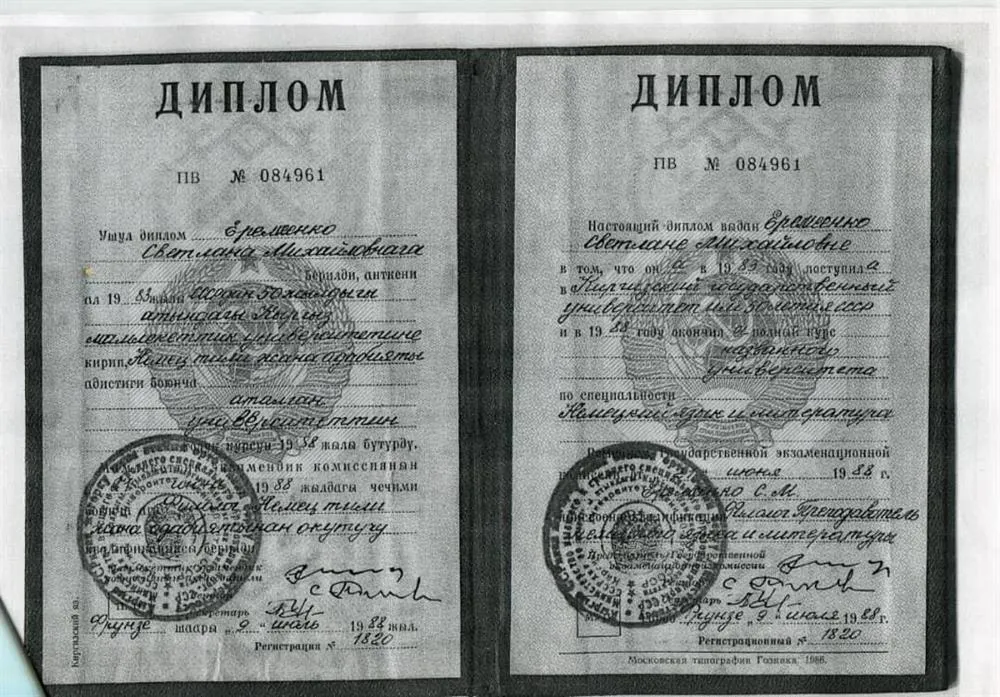 ДИПЛОМ
ПВ № 084961
Ушул диплом Еременко
Светлана Михайловнага
берилди, анткени
ал 19 83 жылы СССРдин 50 жылдыгы
атындагы Кыргыз
мамлекеттик университетине
кирип, Немец тили жана адабияты
адистиги боюнча
аталган
университеттин
курсун 19 88 жылы бутурду.
комиссиянын
19 88 жылдагы чечими
филолог. Немец тили
жана адабиятынан окутуучу
квалификациясы берилди
секретарь
Фрунзе шаары „ 9 “ июль 19 88 жыл.
Регистрация № 1820
Киргизский яз.
ДИПЛОМ
ПВ № 084961
Настоящий диплом выдан Еременко
Светлане Михайловне
в том, что он а в 19 83 году поступил а
в Киргизский государственный
университет им. 50-летия СССР
и в 19 88 году окончил а полный курс
названного
университета
по специальности
Немецкий язык и литература
Государственной экзаменационной
июня 19 88 г.
Еременко С. М.
квалификация Филолог. Преподаватель
немецкого языка и литературы
Председатель Государственной
экзаменационной комиссии
Фрунзе „ 9 “ июля 19 88 г.
Регистрационный № 1820
Московская типография Гознака. 1986.